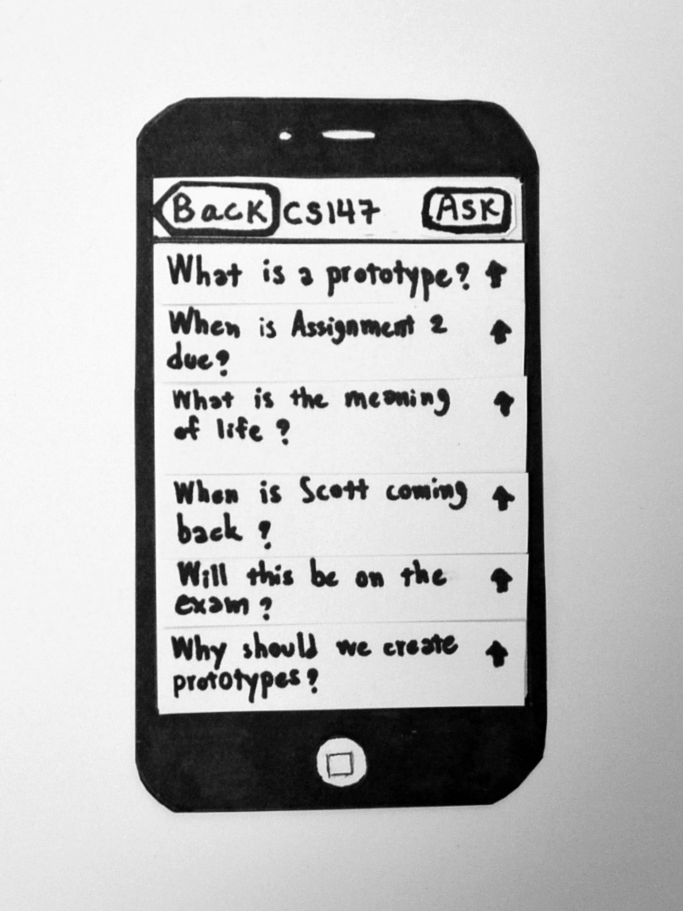 Back CS147 Ask
What is a prototype?
When is Assignment 2
due?
What is the meaning
of life ?
When is Scott coming
back ?
Will this be on the
exam ?
Why should we create
prototypes?